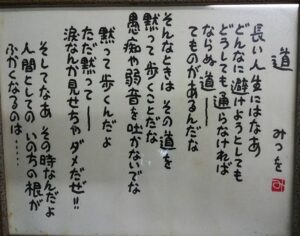 道
みつを
長い人生にはなあ
どんなに避けようとしても
どうしても通らなければ
ならぬ道――
てものがあるんだな
そんなときは その道を
黙って歩くことだな
愚痴や弱音を吐かないでな
黙って歩くんだよ
ただ黙って――
涙なんか見せちゃダメだぜ!!
そしてなあ その時なんだよ
人間としての いのちの根が
ふかくなるのは‥‥